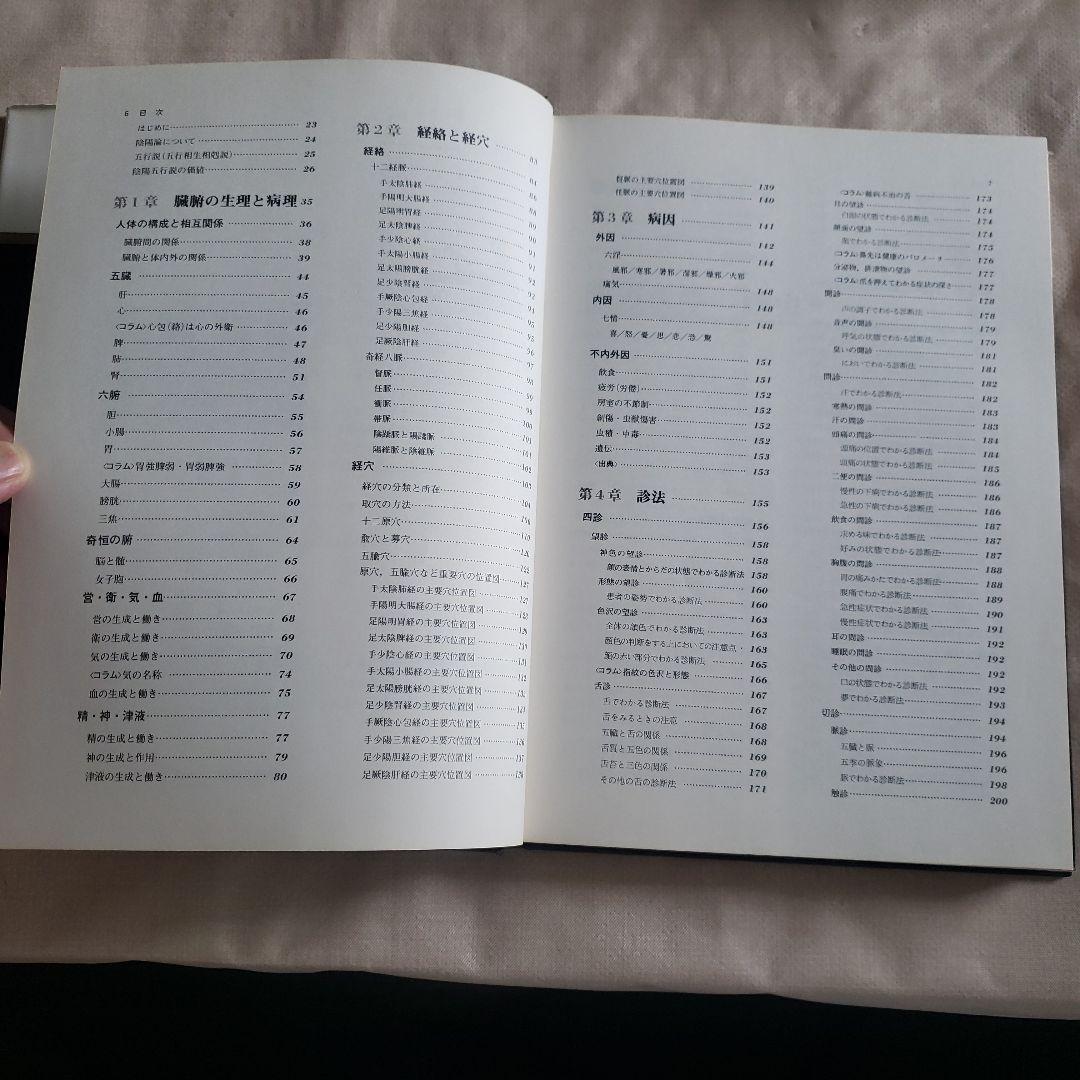 6 目 次
はじめに 23
陰陽論について 24
五行説(五行相生相剋説) 25
陰陽五行説の価値 26
第1章 臓腑の生理と病理 35
人体の構成と相互関係 36
臓腑間の関係 38
臓腑と体内外の関係 39
五臓 44
肝 45
心 46
〈コラム〉心包(絡)は心の外衛 46
脾 47
肺 48
腎 51
六腑 54
胆 55
小腸 56
胃 57
〈コラム〉胃強脾弱・胃弱脾強 58
大腸 59
膀胱 60
三焦 61
奇恒の腑 64
脳と髄 65
女子胞 66
営・衛・気・血 67
営の生成と働き 68
衛の生成と働き 69
気の生成と働き 70
〈コラム〉気の名称 74
血の生成と働き 75
精・神・津液 77
精の生成と働き 77
神の生成と作用 79
津液の生成と働き 80
第2章 経絡と経穴 83
経絡 84
十二経脈 86
手太陰肺経 88
手陽明大腸経
足陽明胃経
足太陰脾経 90
手少陰心経
手太陽小腸経
足太陽膀胱経
足少陰腎経 92
手厥陰心包経
手少陽三焦経
足少陽胆経 95
足厥陰肝経 96
奇経八脈 97
督脈 98
任脈
衝脈
帯脈 100
陰蹻脈と陽蹻脈 101
陽維脈と陰維脈 102
経穴
経穴の分類と所在 104
取穴の方法
十二原穴
兪穴と募穴
五兪穴
原穴，五兪穴など重要穴の位置図 127
手太陰肺経の主要穴位置図 127
手陽明大腸経の主要穴位置図
足陽明胃経の主要穴位置図
足太陰脾経の主要穴位置図 130
手少陰心経の主要穴位置図 131
手太陽小腸経の主要穴位置図 132
足太陽膀胱経の主要穴位置図
足少陰腎経の主要穴位置図
手厥陰心包経の主要穴位置図 135
手少陽三焦経の主要穴位置図 136
足少陽胆経の主要穴位置図 137
足厥陰肝経の主要穴位置図 138
7
督脈の主要穴位置図 139
任脈の主要穴位置図 140
第3章 病因 141
外因 142
六淫 144
風邪／寒邪／暑邪／湿邪／燥邪／火邪
癘気 148
内因 148
七情 148
喜／怒／憂／思／悲／恐／驚
不内外因 151
飲食 151
疲労(労倦) 152
房室の不節制 152
創傷・虫獣傷害 152
虫積・中毒 152
遺伝 153
〈出典〉 153
第4章 診法 155
四診 156
望診 158
神色の望診 158
顔の表情とからだの状態でわかる診断法 158
形態の望診 160
患者の姿勢でわかる診断法 160
色沢の望診 163
全体の顔色でわかる診断法 163
顔色の判断をする上においての注意点 163
顔の赤い部分でわかる診断法 165
〈コラム〉指紋の色沢と形態 166
舌診 167
舌でわかる診断法 167
舌をみるときの注意 168
五臓と舌の関係 168
舌質と五色の関係 169
舌苔と三色の関係 170
その他の舌の診断法 171
〈コラム〉難病不治の舌 173
目の望診 174
白眼の状態でわかる診断法 174
顔面の望診 174
顔でわかる診断法 175
〈コラム〉鼻先は健康のバロメーター 176
分泌物，排泄物の望診 177
〈コラム〉爪を押えてわかる症状の深さ 177
聞診 178
声の調子でわかる診断法 178
音声の聞診 179
呼気の状態でわかる診断法 179
臭いの聞診 181
においでわかる診断法 181
問診 182
汗でわかる診断法 182
寒熱の問診 183
汗の問診 183
頭痛の問診 184
頭痛の位置でわかる診断法 184
頭痛の状態でわかる診断法 185
二便の問診 186
慢性の下痢でわかる診断法 186
急性の下痢でわかる診断法 186
飲食の問診 187
求める味でわかる診断法 187
好みの状態でわかる診断法 187
胸腹の問診 188
胃の痛みかたでわかる診断法 188
腹痛でわかる診断法 189
急性症状でわかる診断法 190
慢性症状でわかる診断法 191
耳の問診 192
睡眠の問診 192
その他の問診 192
口の状態でわかる診断法 192
夢でわかる診断法 193
切診 194
脈診 194
五臓と脈 196
五季の脈象 196
脈でわかる診断法 198
触診 200